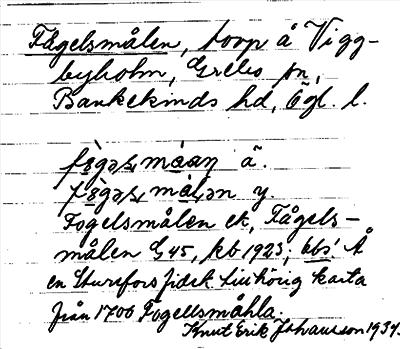 Fågelsmålen, torp å Vigg-
byholm, Grebo sn,
Bankekinds hd, Ögl. l.
målen y.
Fogelsmålen ek, Fågels-
målen G45, kb 1923; obs! Å
en Sturefors fidek. tillhörig karta
från 1700 Fogellsmåhla.
Knut Erik Johansson 1934.